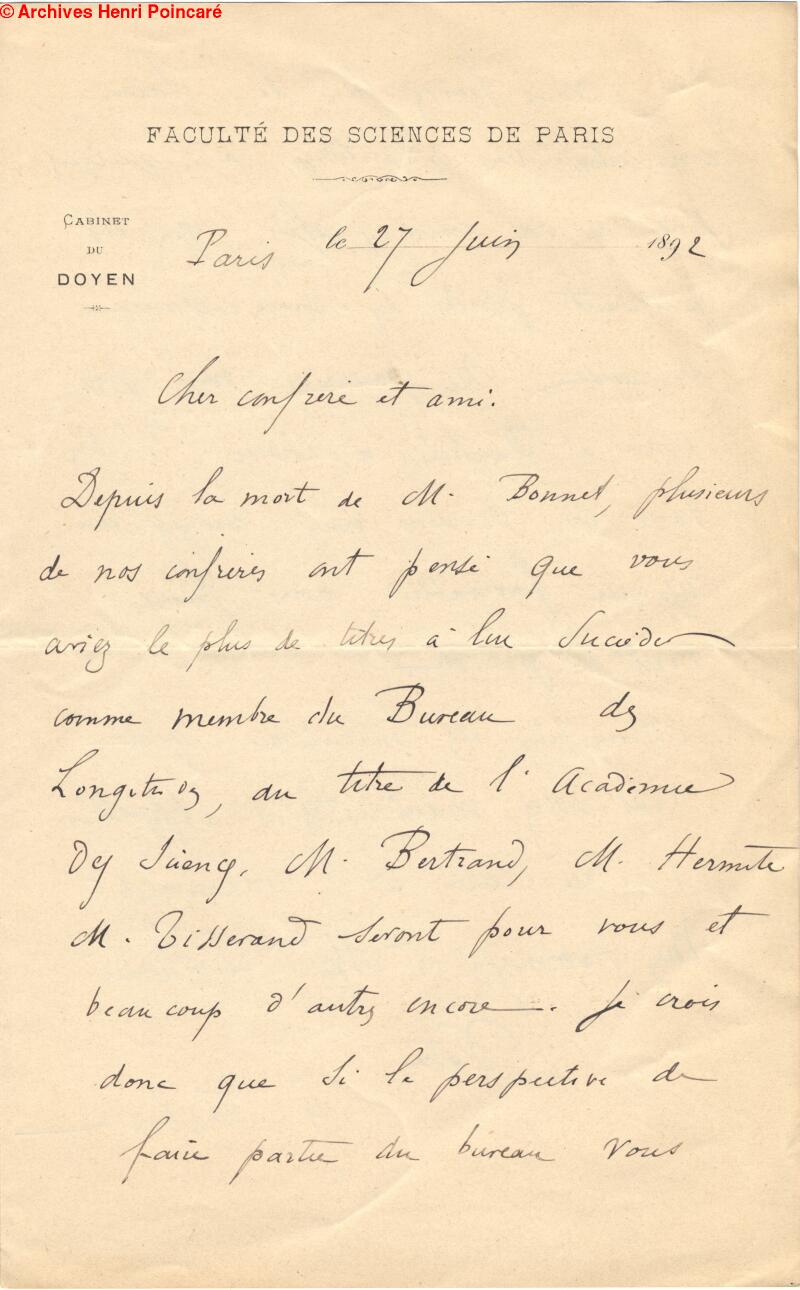 © Archives Henri Poincaré
FACULTÉ DES SCIENCES DE PARIS
CABINET
DU
DOYEN
Paris le 27 Juin 1892
Cher confrère et ami.
Depuis la mort de M. Bonnet, plusieurs
de nos confrères ont pensé que vous
aviez le plus de titres à lui succéder
comme membre du Bureau des
Longitudes, au titre de l'Académie
des Sciences. M. Bertrand, M. Hermite
M. Tisserand seront pour vous et
beaucoup d'autres encore. Je crois
donc que si la perspective de
faire partie du bureau vous